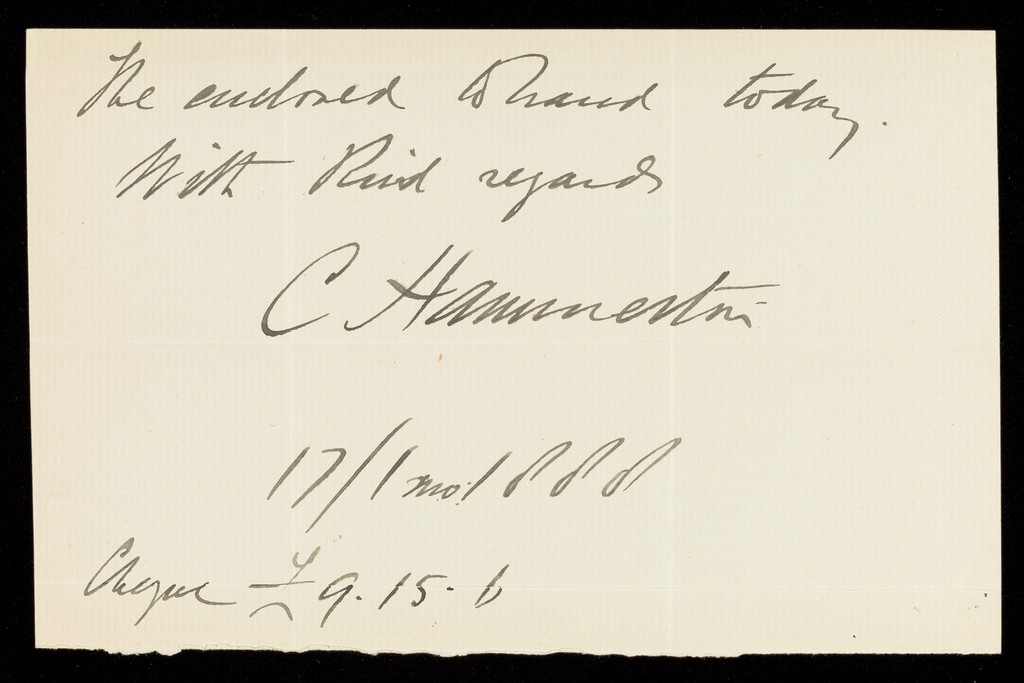 The enclosed to hand today.
With Kind regards
C Hammerton
17/1 mo/888
Cheque £9.15.6